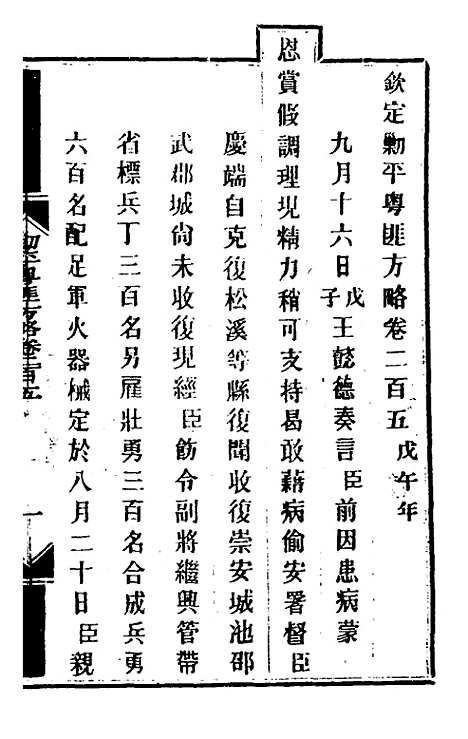 欽定勦平粵匪方略卷二百五 戊午年
九月十六日戊子王懿德奏言臣前因患病蒙
恩賞假調理現精力稍可支持曷敢藉病偷安署督臣
慶端自克復松溪等縣復聞收復崇安城池邵
武郡城尚未收復現經臣飭令副將繼興管帶
省標兵丁三百名另雇壯勇三百名合成兵勇
六百名配足軍火器械定於八月二十日臣親
欽定勦平粵匪方略卷二百五
一